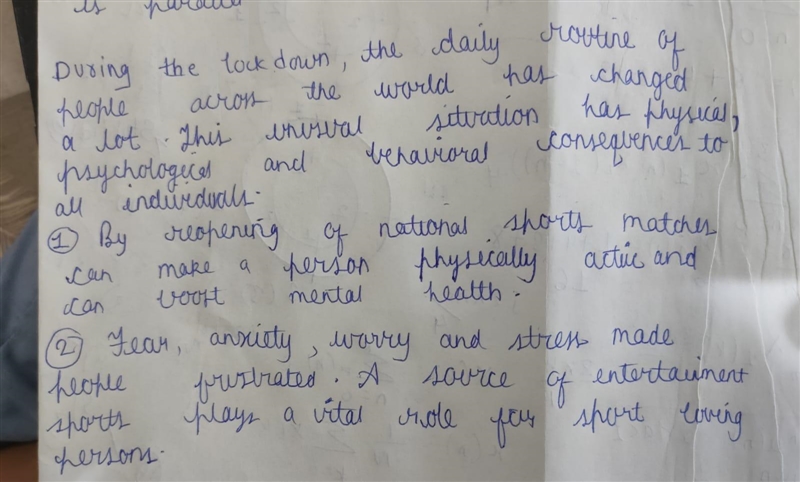 is
During the lockdown, the daily routine of
people across the world has changed
a lot. This unusual situation has physical,
psychological and behavioral consequences to
all individuals.
① By reopening of national sports matches
can make a person physically active and
can boost mental health.
② Fear, anxiety, worry and stress made
people frustrated. A source of entertainment
sports plays a vital role for sport loving
persons.